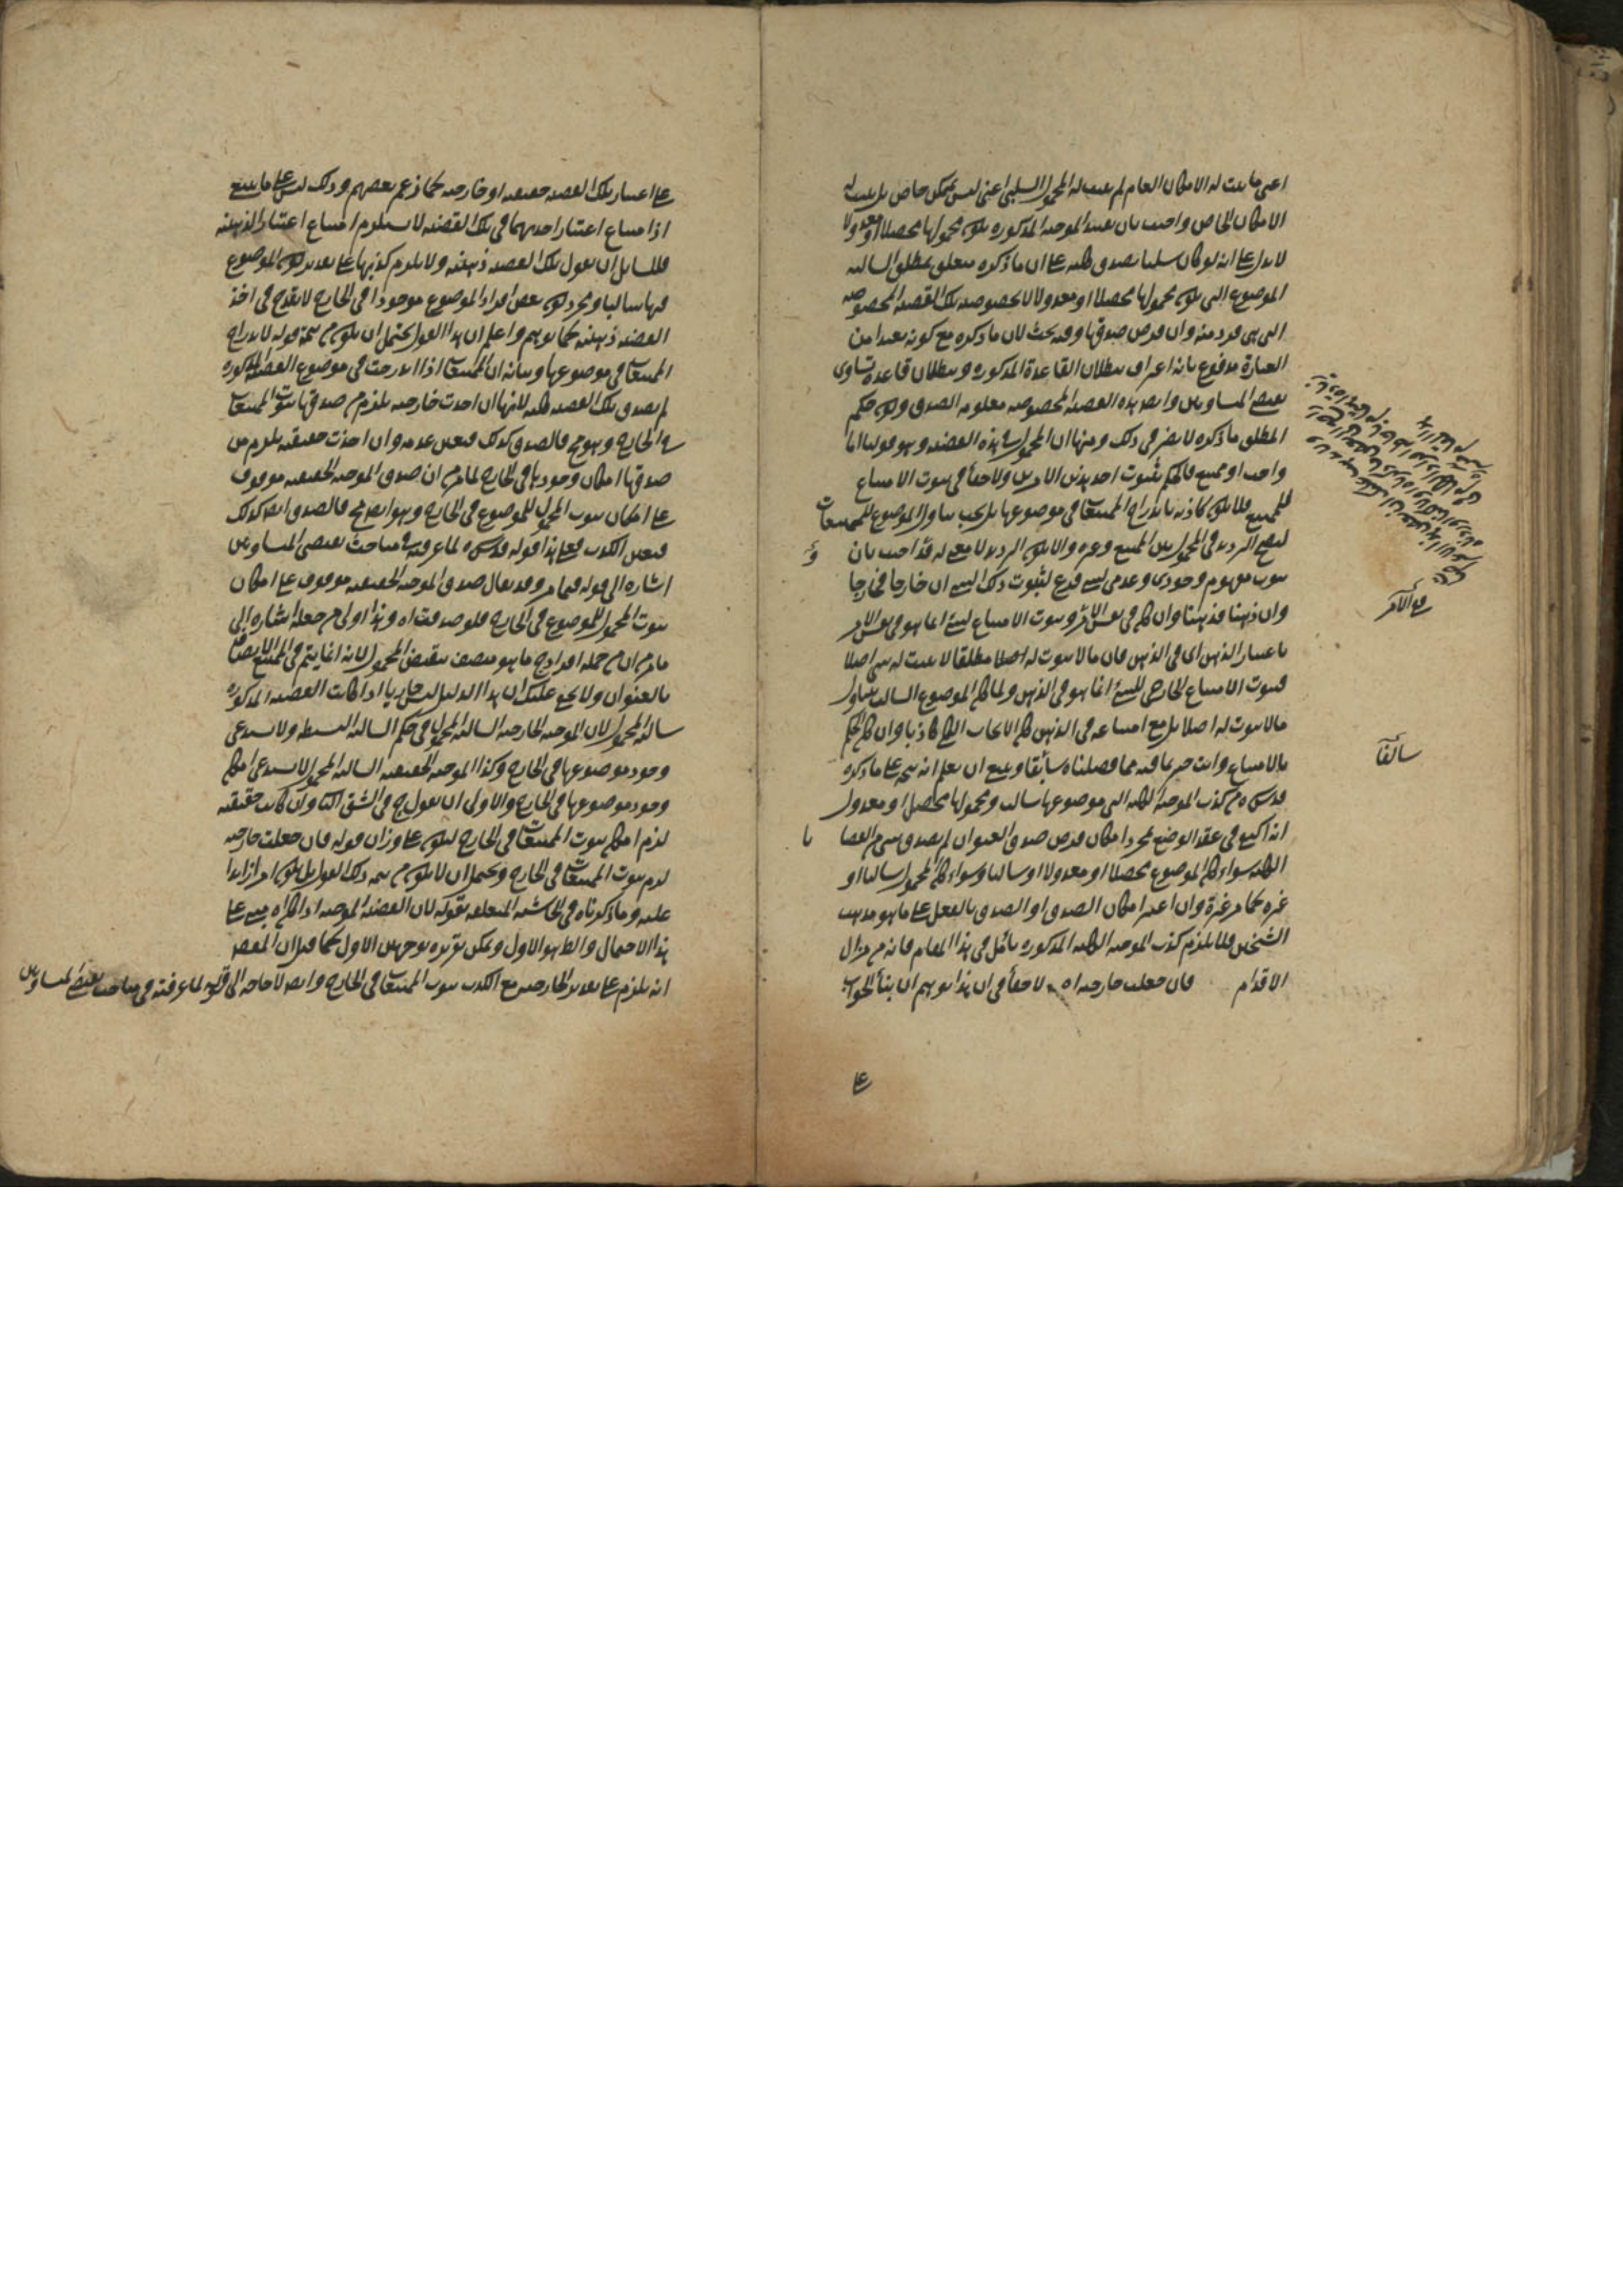 اعنى ما يثبت له الامكان العام لم يثبت له المحمول السلبى اعنى ليس بممكن خاص بل يثبت له
الامكان الخاص واجيب بان تقييد الموجبة المذكورة بكون محمولها محصلا او معدولا
لا يدل على انه لو كان سلبيا يصدق كلية على ان ما ذكره متعلق بمطلق السالبة
الموضوع التى يكون محمولها محصلا او معدولا لا بخصوص تلك القضية المخصوصة
التى هى فرد منه وان فرض صدقها وفيه بحث لان ما ذكره مع كونه بعيدا من
العبارة مدفوع بانه اعتراف ببطلان القاعدة المذكورة وببطلان قاعدة تساوى
نقيضى المتساويين وايضا هذه القضية المخصوصة معلومة الصدق وكون حكم
المطلق ما ذكره لا يضر فى ذلك ومنها ان المحمول فى هذه القضية وهو قولنا اما
واجب او ممتنع فالحكم بثبوت احد هذين الامرين ولا خفأ فى ثبوت الامتناع
للممتنع فلا يكون كاذبة باندراج الممتنعات فى موضوعها بل يجب تناول الموضوع للممتنعات
ليصح الترديد فى المحمول بين الممتنع وغيره والا يكون الترديد لا معنى له وقد اجيب بان
ثبوت مفهوم وجودى وعدمى لشئ فرع لثبوت ذلك الشئ ان خارجا فخارجا
وان ذهنا فذهنا وان كان فى نفس الامر وثبوت الامتناع لشئ انما هو فى نفس الامر
باعتبار الذهن اى فى الذهن فان ما لا ثبوت له اصلا مطلقا لا يثبت له شئ اصلا
فثبوت الامتناع الخارجى للشئ انما هو فى الذهن ولما كان الموضوع السالب يتناول
ما لا ثبوت له اصلا بل مع امتناعه فى الذهن كان الايجاب الكلى كاذبا وان كان الحكم
بالامتناع وانت خبير بما فيه مما فصلناه سابقا وينبغى ان يعلم انه يتجه على ما ذكره
قدس سره من كذب الموجبة الكلية التى موضوعها سالب ومحمولها محصل او معدول
انه اكتفى فى عقد الوضع بمجرد امكان فرض صدق العنوان لم يصدق شئ من القضايا
الكلية سواء كان الموضوع محصلا او معدولا او سالبا وسواء كان المحمول سالبا او
غيره كما مر غير مرة وان اعتبر امكان الصدق او الصدق بالفعل على ما هو مذهب
الشيخين فلا يلزم كذب الموجبة الكلية المذكورة تأمل فى هذا المقام فانه من مزال
الاقدام فان جعلت خارجية اه لا خفأ فى ان هذا يوهم ان بنأ الجواب
على
فى الامر
سالفا
على اعتبار تلك القضية حقيقية او خارجية كما زعم بعضهم وذلك ليس على ما ينبغى
اذ امتناع اعتبار احديهما فى تلك القضية لا يستلزم امتناع اعتبار الذهنية
فللسائل ان يقول تلك القضية ذهنية ولا يلزم كذبها على تقدير كون الموضوع
فيها سالبا ومجرد كون بعض افراد الموضوع موجودا فى الخارج لا يقدح فى اخذ
القضية ذهنية كما توهم واعلم ان هذا القول يحتمل ان يكون من تتمة قوله لاندراج
الممتنعات فى موضوعها وبيانه ان الممتنعات اذا اندرجت فى موضوع القضية المذكورة
لم يصدق تلك القضية كلية لانها ان اخذت خارجية يلزم من صدقها ثبوت الممتنعات
فى الخارج وهو مح فالصدق كذلك فتعين عدمه وان اخذت حقيقية يلزم من
صدقها امكان وجودها فى الخارج لما مر من ان صدق الموجبة الحقيقية موقوف
على امكان ثبوت المحمول للموضوع فى الخارج وهو ايضا مح فالصدق ايضا كذلك
فتعين الكذب فعلى هذا قوله قدس سره لما عرفت فى مباحث نقيضى المتساويين
اشارة الى قوله فيما مر وقد يقال صدق الموجبة الحقيقية موقوف على امكان
ثبوت المحمول للموضوع فى الخارج فلو صدقت اه وهذا اولى من جعله اشارة الى
ما مر من ان من جملة افراد ج ما هو متصف بنقيض المحمول لانه انما يتم فى الممتنع الاتصاف
بالعنوان ولا يخفى عليك ان هذا الدليل ليس جاريا اذا كانت القضية المذكورة
سالبة المحمول لان الموجبة الخارجية السالبة المحمول فى حكم السالبة البسيطة ولا يستدعى
وجود موضوعها فى الخارج وكذا الموجبة الحقيقية السالبة المحمول لا يستدعى امكان
وجود موضوعها فى الخارج والاولى ان يقول ج فى الشق الثانى وان كانت حقيقية
لزم امكان ثبوت الممتنعات فى الخارج ليكون على وزان قوله فان جعلت خارجية
لزم ثبوت الممتنعات فى الخارج ويحتمل ان لا يكون من تتمة ذلك القول بل يكون امرا زايدا
عليه وما ذكرناه فى الحاشية المتعلقة بقوله لان القضية الموجبة اذا كان اه مبنى على
هذا الاحتمال والظ هو الاول ويمكن تقريره بوجهين الاول كما قيل ان المقصود
انه يلزم على تقدير الخارجية مع الكذب ثبوت الممتنعات فى الخارج وايضا لا حاجة الى قوله لما عرفته فى مباحث نقيضى المتساويين